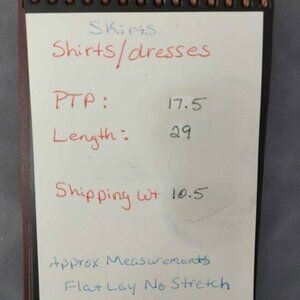 Skirts
Shirts/dresses
PTP: 17.5
Length: 29
Shipping wt 10.5
Approx Measurements
Flat Lay No Stretch